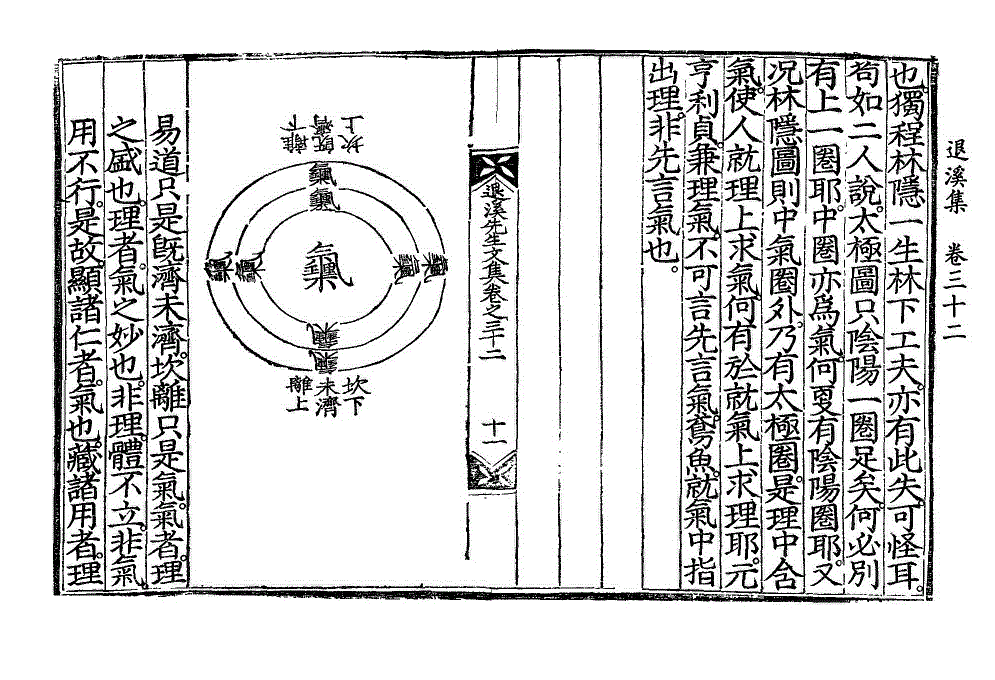 退溪集　卷三十二
也。獨程林隱一生林下工夫。亦有此失。可怪耳。
苟如二人說。太極圖只陰陽一圈足矣。何必別
有上一圈耶。中圈亦爲氣。何更有陰陽圈耶。又
况林隱圖則中氣圈外。乃有太極圈。是理中含
氣。使人就理上求氣。何有於就氣上求理耶。元
亨利貞。兼理氣。不可言先言氣。鳶魚。就氣中指
出理。非先言氣也。
退溪先生文集卷之三十二
十一
坎上
旣濟
離下
坎下
未濟
離上
易道只是旣濟未濟。坎離只是氣。氣者。理
之盛也。理者。氣之妙也。非理。體不立。非氣
用不行。是故。顯諸仁者。氣也。藏諸用者。理